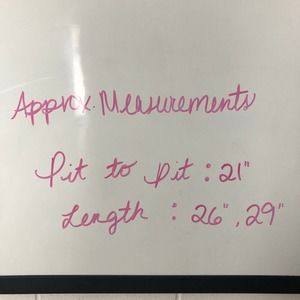 Approx. Measurements
Pit to pit : 21"
Length : 26", 29"